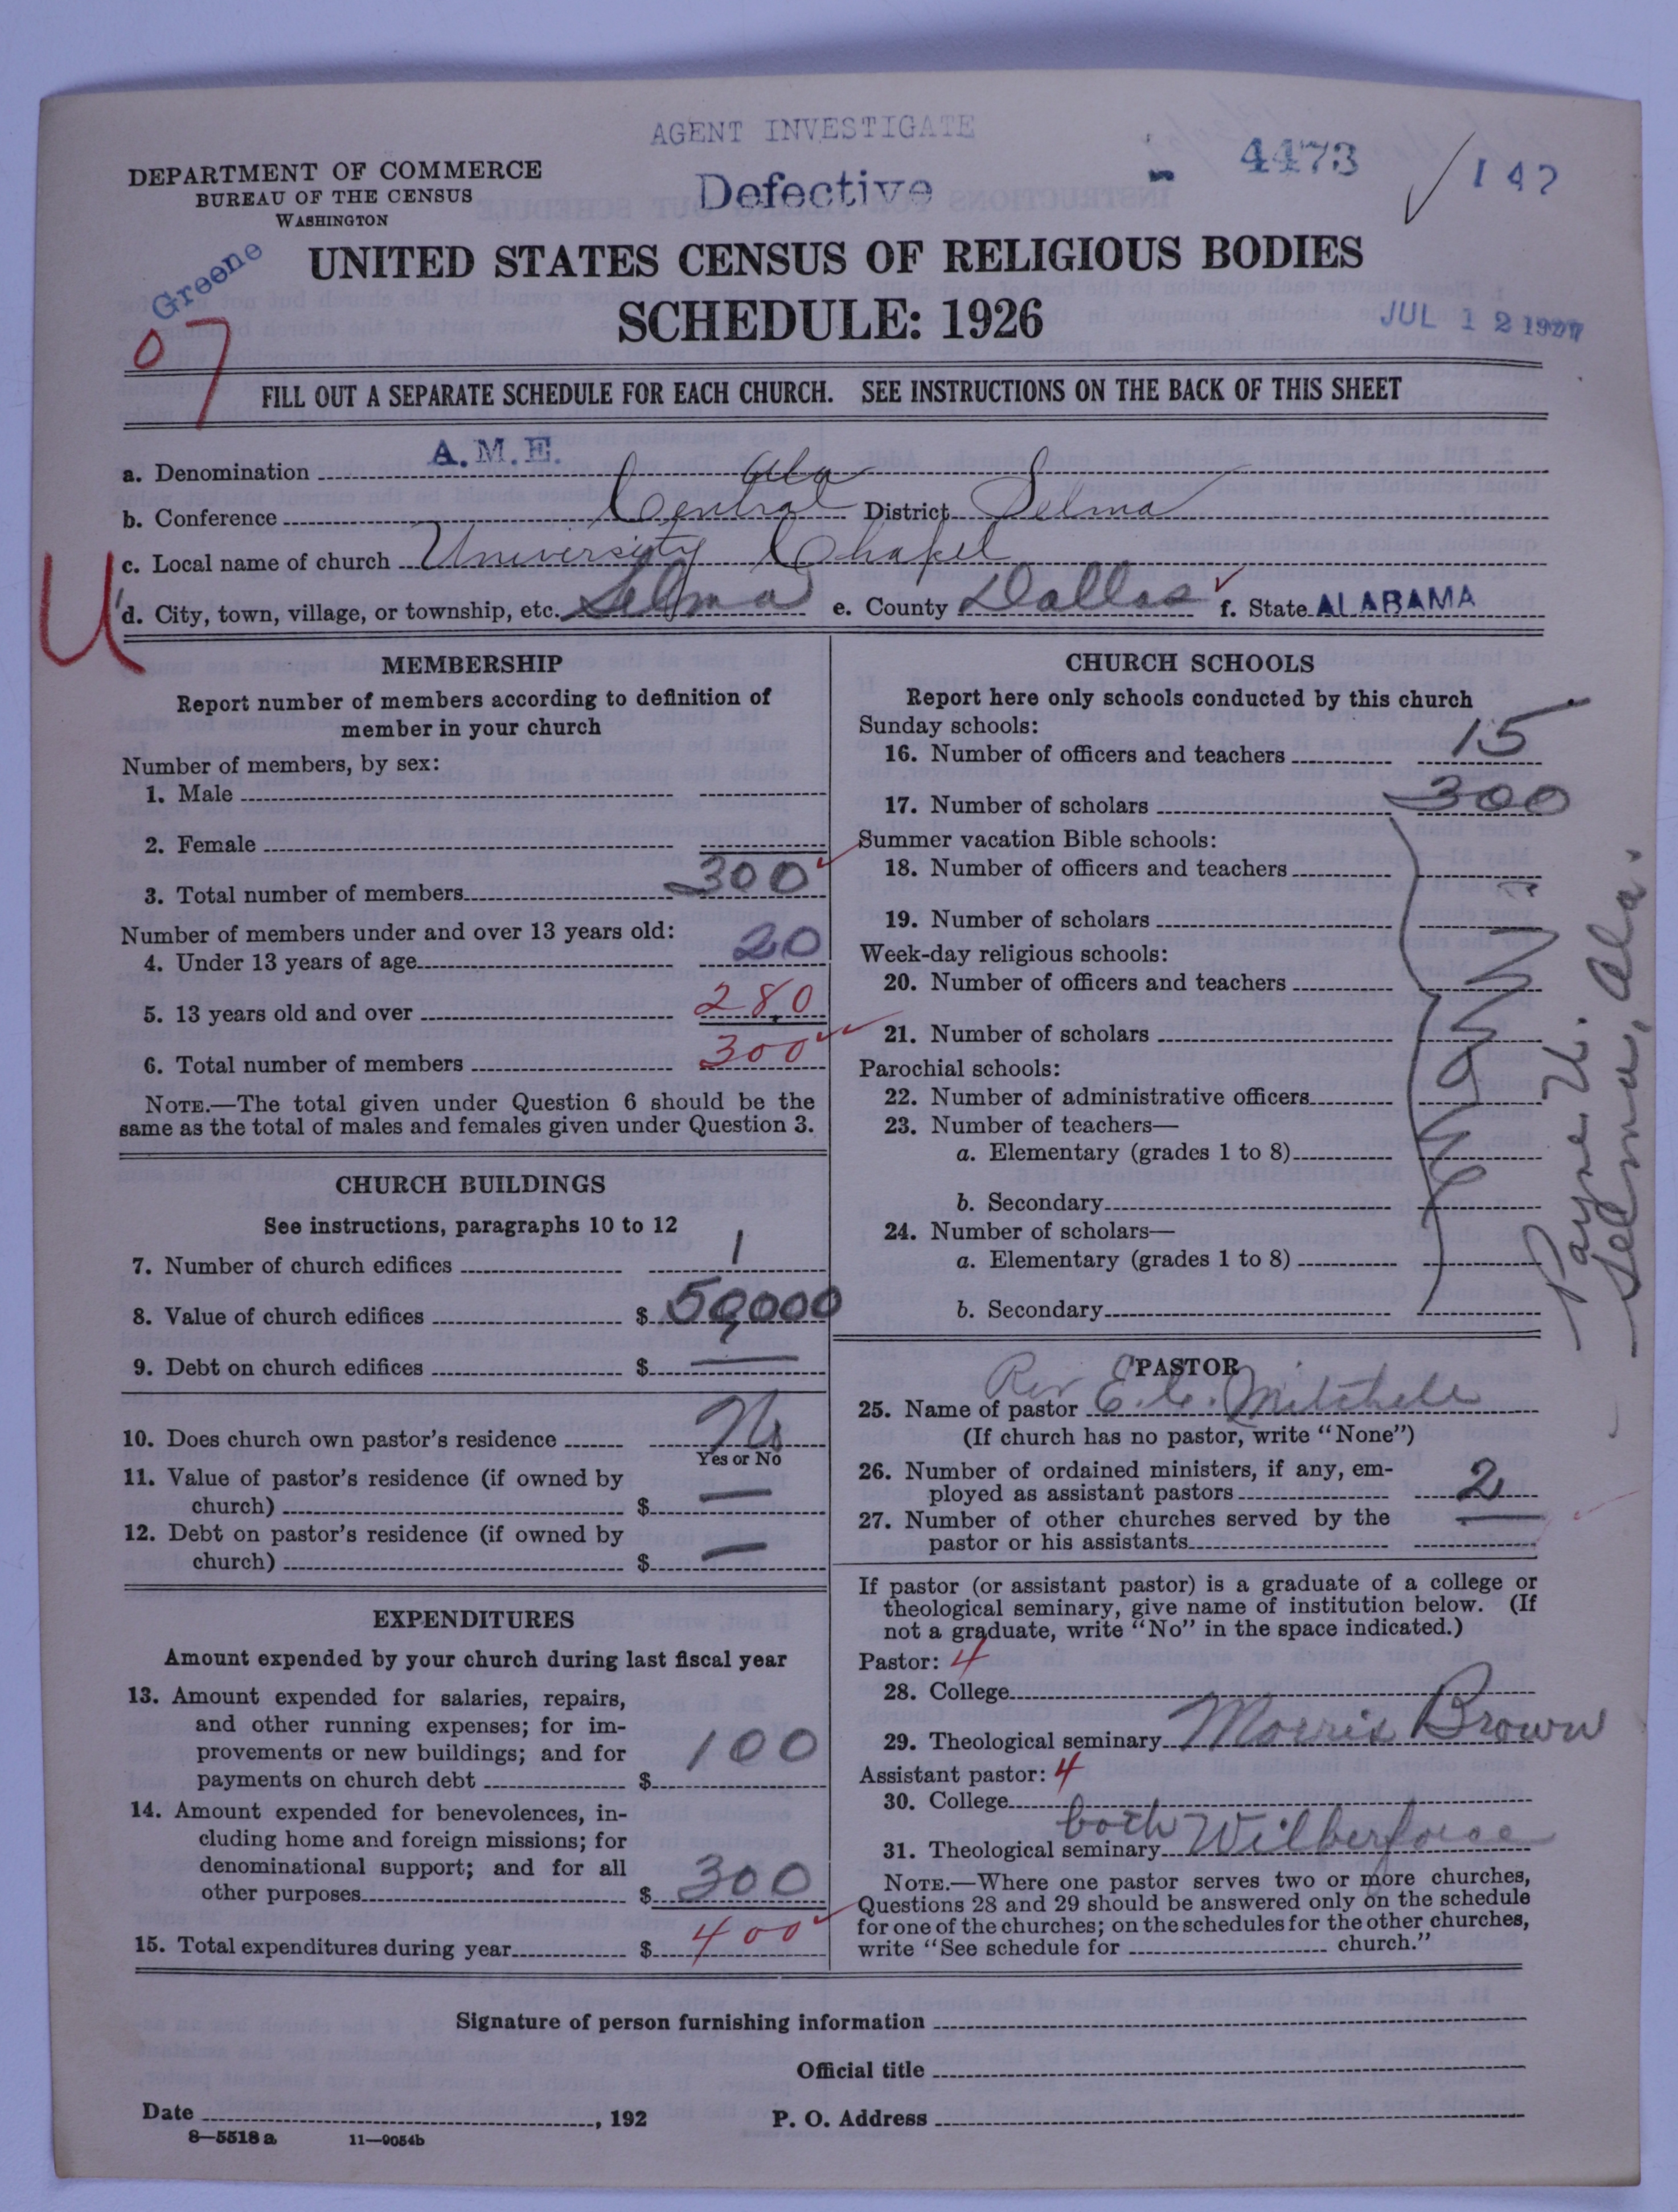 AGENT INVESTIGATE
DEPARTMENT OF COMMERCE
BUREAU OF THE CENSUS
WASHINGTON
Defective
4473
147
Greene
07
UNITED STATES CENSUS OF RELIGIOUS BODIES
SCHEDULE: 1926
JUL 12 1927
FILL OUT A SEPARATE SCHEDULE FOR EACH CHURCH. SEE INSTRUCTIONS ON THE BACK OF THIS SHEET
a. Denomination A.M.E.
b. Conference Central Ala District Selma
c. Local name of church University Chapel
U
d. City, town, village, or township, etc. Selma e. County Dallas f. State ALABAMA
MEMBERSHIP
Report number of members according to definition of
member in your church
Number of members, by sex:
1. Male
2. Female
3. Total number of members 300
Number of members under and over 13 years old:
4. Under 13 years of age 20
5. 13 years old and over 280
6. Total number of members 300
NOTE.—The total given under Question 6 should be the
same as the total of males and females given under Question 3.
CHURCH BUILDINGS
See instructions, paragraphs 10 to 12
7. Number of church edifices 1
8. Value of church edifices $ 50,000
9. Debt on church edifices $ —
10. Does church own pastor's residence No
Yes or No
11. Value of pastor's residence (if owned by
church) $ —
12. Debt on pastor's residence (if owned by
church) $ —
EXPENDITURES
Amount expended by your church during last fiscal year
13. Amount expended for salaries, repairs,
and other running expenses; for im-
provements or new buildings; and for
payments on church debt $ 100
14. Amount expended for benevolences, in-
cluding home and foreign missions; for
denominational support; and for all
other purposes $ 300
15. Total expenditures during year $ 400
CHURCH SCHOOLS
Report here only schools conducted by this church
Sunday schools:
16. Number of officers and teachers 15
17. Number of scholars 300
Summer vacation Bible schools:
18. Number of officers and teachers
19. Number of scholars
Week-day religious schools:
20. Number of officers and teachers
21. Number of scholars
Parochial schools:
22. Number of administrative officers
23. Number of teachers—
a. Elementary (grades 1 to 8)
b. Secondary
24. Number of scholars—
a. Elementary (grades 1 to 8)
b. Secondary
Payne U.
Selma, Ala.
PASTOR
25. Name of pastor Rev E. C. Mitchell
(If church has no pastor, write "None")
26. Number of ordained ministers, if any, em-
ployed as assistant pastors 2
27. Number of other churches served by the
pastor or his assistants —
If pastor (or assistant pastor) is a graduate of a college or
theological seminary, give name of institution below. (If
not a graduate, write "No" in the space indicated.)
Pastor: 4
28. College
29. Theological seminary Morris Brown
Assistant pastor: 4
30. College
31. Theological seminary both Wilberforce
NOTE.—Where one pastor serves two or more churches,
Questions 28 and 29 should be answered only on the schedule
for one of the churches; on the schedules for the other churches,
write "See schedule for church."
Signature of person furnishing information
Official title
Date , 192 P. O. Address
8—5518a 11—9054b